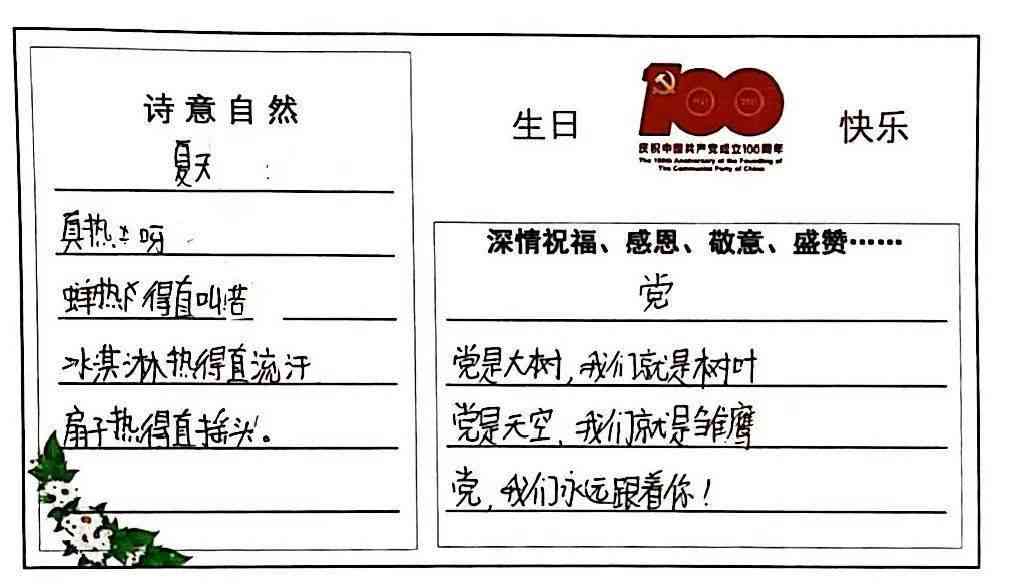 诗意自然
夏天
真热呀
蝉热得直叫苦
冰淇淋热得直流汗
扇子热得直摇头。
生日
100
庆祝中国共产党成立100周年
The 100th Anniversary of the Founding of
The Communist Party of China
快乐
深情祝福、感恩、敬意、盛赞……
党
党是大树，我们就是树叶
党是天空，我们就是雏鹰
党，我们永远跟着你！